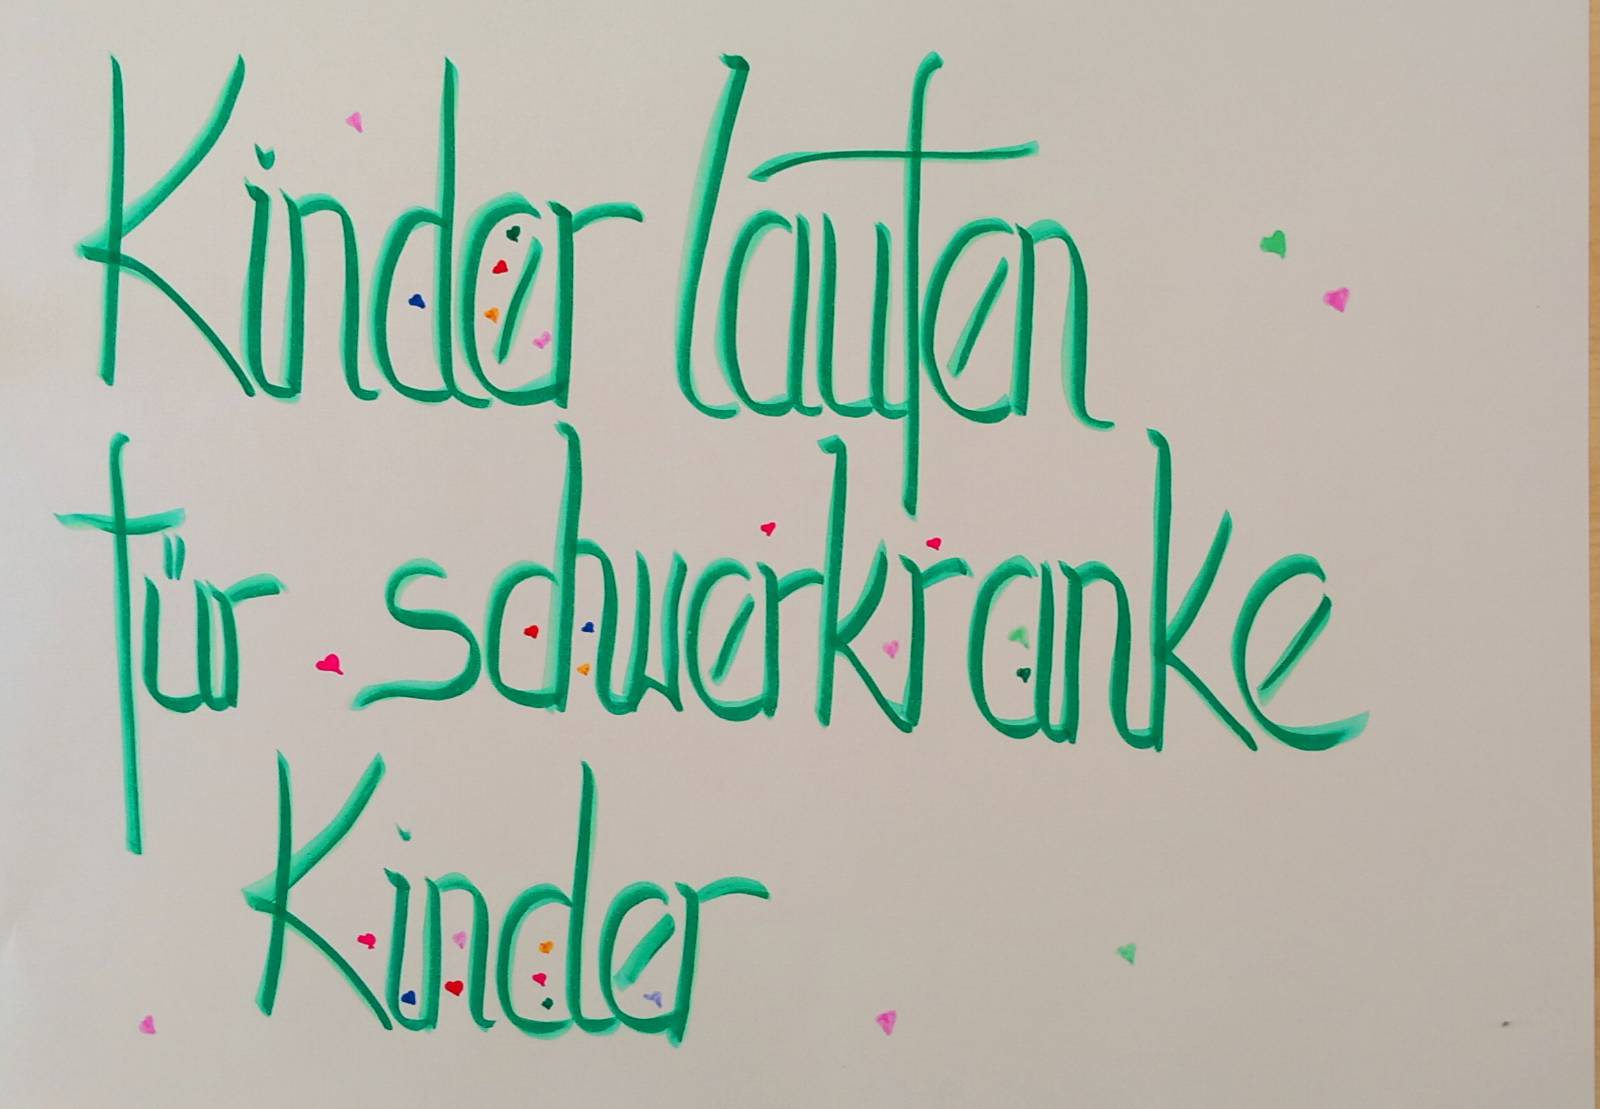 Kinder laufen
für schwerkranke
Kinder